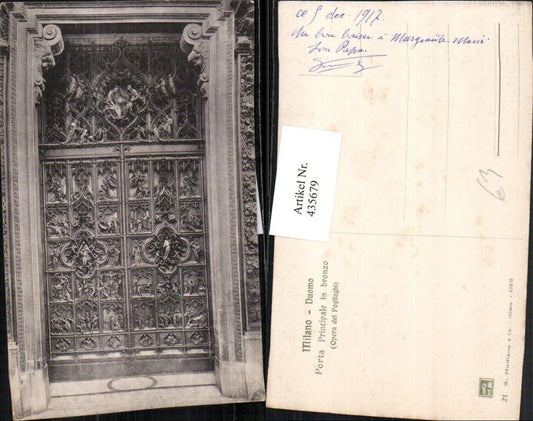 ce 5 dec. 1917.
Un bon baiser à Marguerite Marie.
Son Papa.
63
Artikel Nr.
435679
Milano - Duomo
Porta Principale in bronzo
(Opera del Pogliaghi)
21
Milano